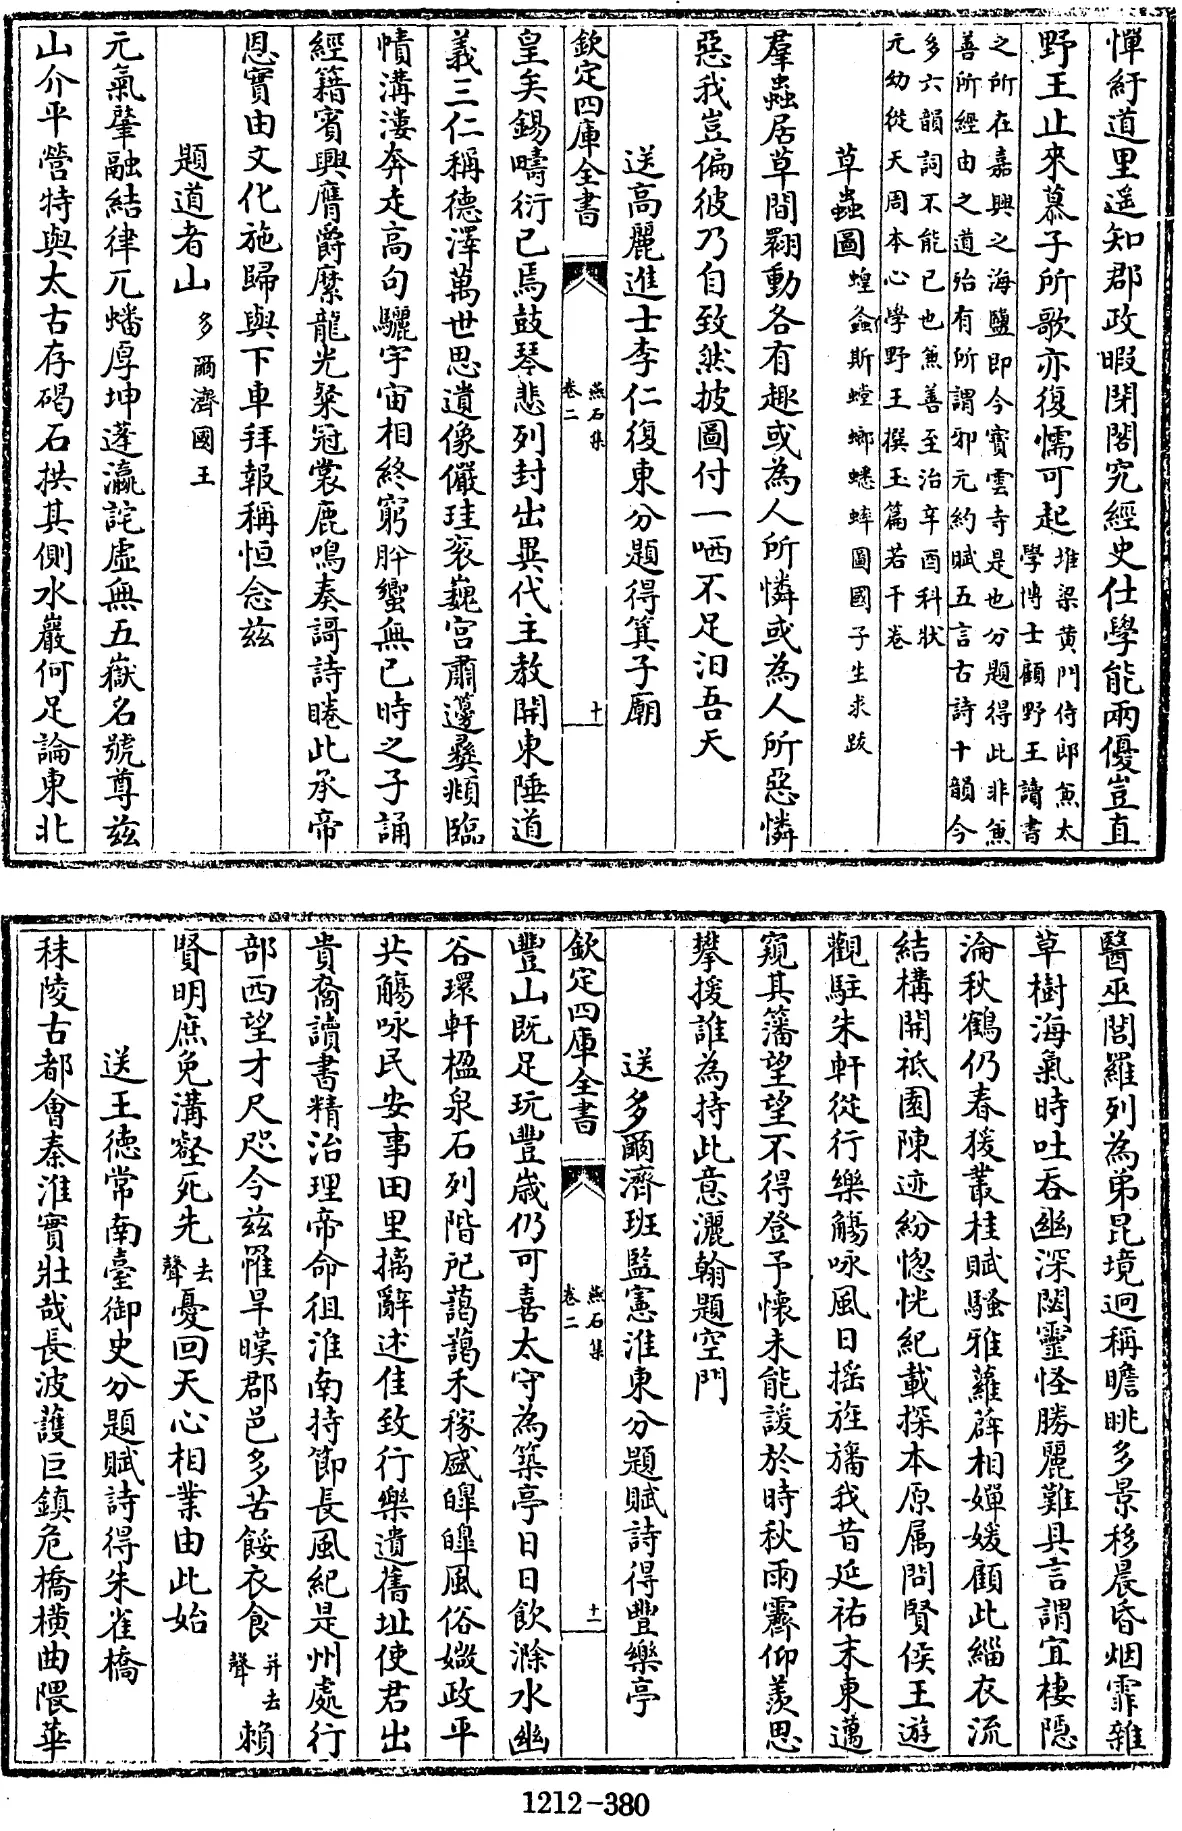 憚紆道里遥知郡政暇閉閤究經史仕學能兩優豈直
野王止來慕子所歌亦復懦可起堆梁黄門侍郎兼太
學博士顧野王讀書
之所在嘉興之海鹽即今寳雲寺是也分題得此非兼
善所經由之道殆有所謂邪元約賦五言古詩十韻今
多六韻詞不能已也兼善至治辛酉科狀
元幼從天周本心學野王撰玉篇若干卷
草蟲圖蝗螽斯螳螂蟋蟀圖國子生求跋
羣蟲居草間翾動各有趣或為人所憐或為人所惡憐
惡我豈偏彼乃自致然披圖付一哂不足汩吾天
送高麗進士李仁復東分題得箕子廟
欽定四庫全書
燕石集
卷二
十
皇矣錫疇衍已焉鼓琴悲列封出異代主教開東陲道
義三仁稱德澤萬世思遺像儼珪衮巍宫肅籩彝頫臨
幘溝漊奔走高句驪宇宙相終窮肸蠁無已時之子誦
經籍賓興膺爵縻龍光粲冠裳鹿鳴奏謌詩睠此承帝
恩實由文化施歸與下車拜報稱恒念兹
題道者山多爾濟國王
元氣肇融結律兀蟠厚坤蓬瀛詫虚無五嶽名號尊兹
山介平營特與太古存碣石拱其側水巖何足論東北
醫巫閭羅列為弟昆境迥稱瞻眺多景移晨昏烟霏雜
草樹海氣時吐吞幽深閟靈怪勝麗難具言謂宜棲隱
淪秋鶴仍春猨叢桂賦騷雅蘿薜相嬋媛顧此緇衣流
結構開祇園陳迹紛惚恍紀載探本原屬問賢侯王遊
觀駐朱軒從行樂觴咏風日揺旌旛我昔延祐末東邁
窺其籓望望不得登予懷未能諼於時秋雨霽仰羨思
攀援誰為持此意灑翰題空門
送多爾濟班監憲淮東分題賦詩得豐樂亭
欽定四庫全書
燕石集
卷二
十一
豐山既足玩豐歲仍可喜太守為築亭日日飲滁水幽
谷環軒楹泉石列階戺藹藹禾稼盛皥皥風俗媺政平
共觴咏民安事田里摛辭述佳致行樂遺舊址使君出
貴裔讀書精治理帝命徂淮南持節長風紀是州處行
部西望才尺咫今兹罹旱暵郡邑多苦餒衣食并去
聲賴
賢明庶免溝壑死先去
聲憂回天心相業由此始
送王德常南臺御史分題賦詩得朱雀橋
秣陵古都會秦淮實壯哉長波護巨鎮危橋横曲隈華
1212-380